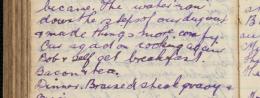 became, The water ran
down the steps of our dugout
& made things more comfy.
Our squad on cooking again
Bob & self get breakfast.
Bacon & tea.
Dinner. Braised steak gravy &